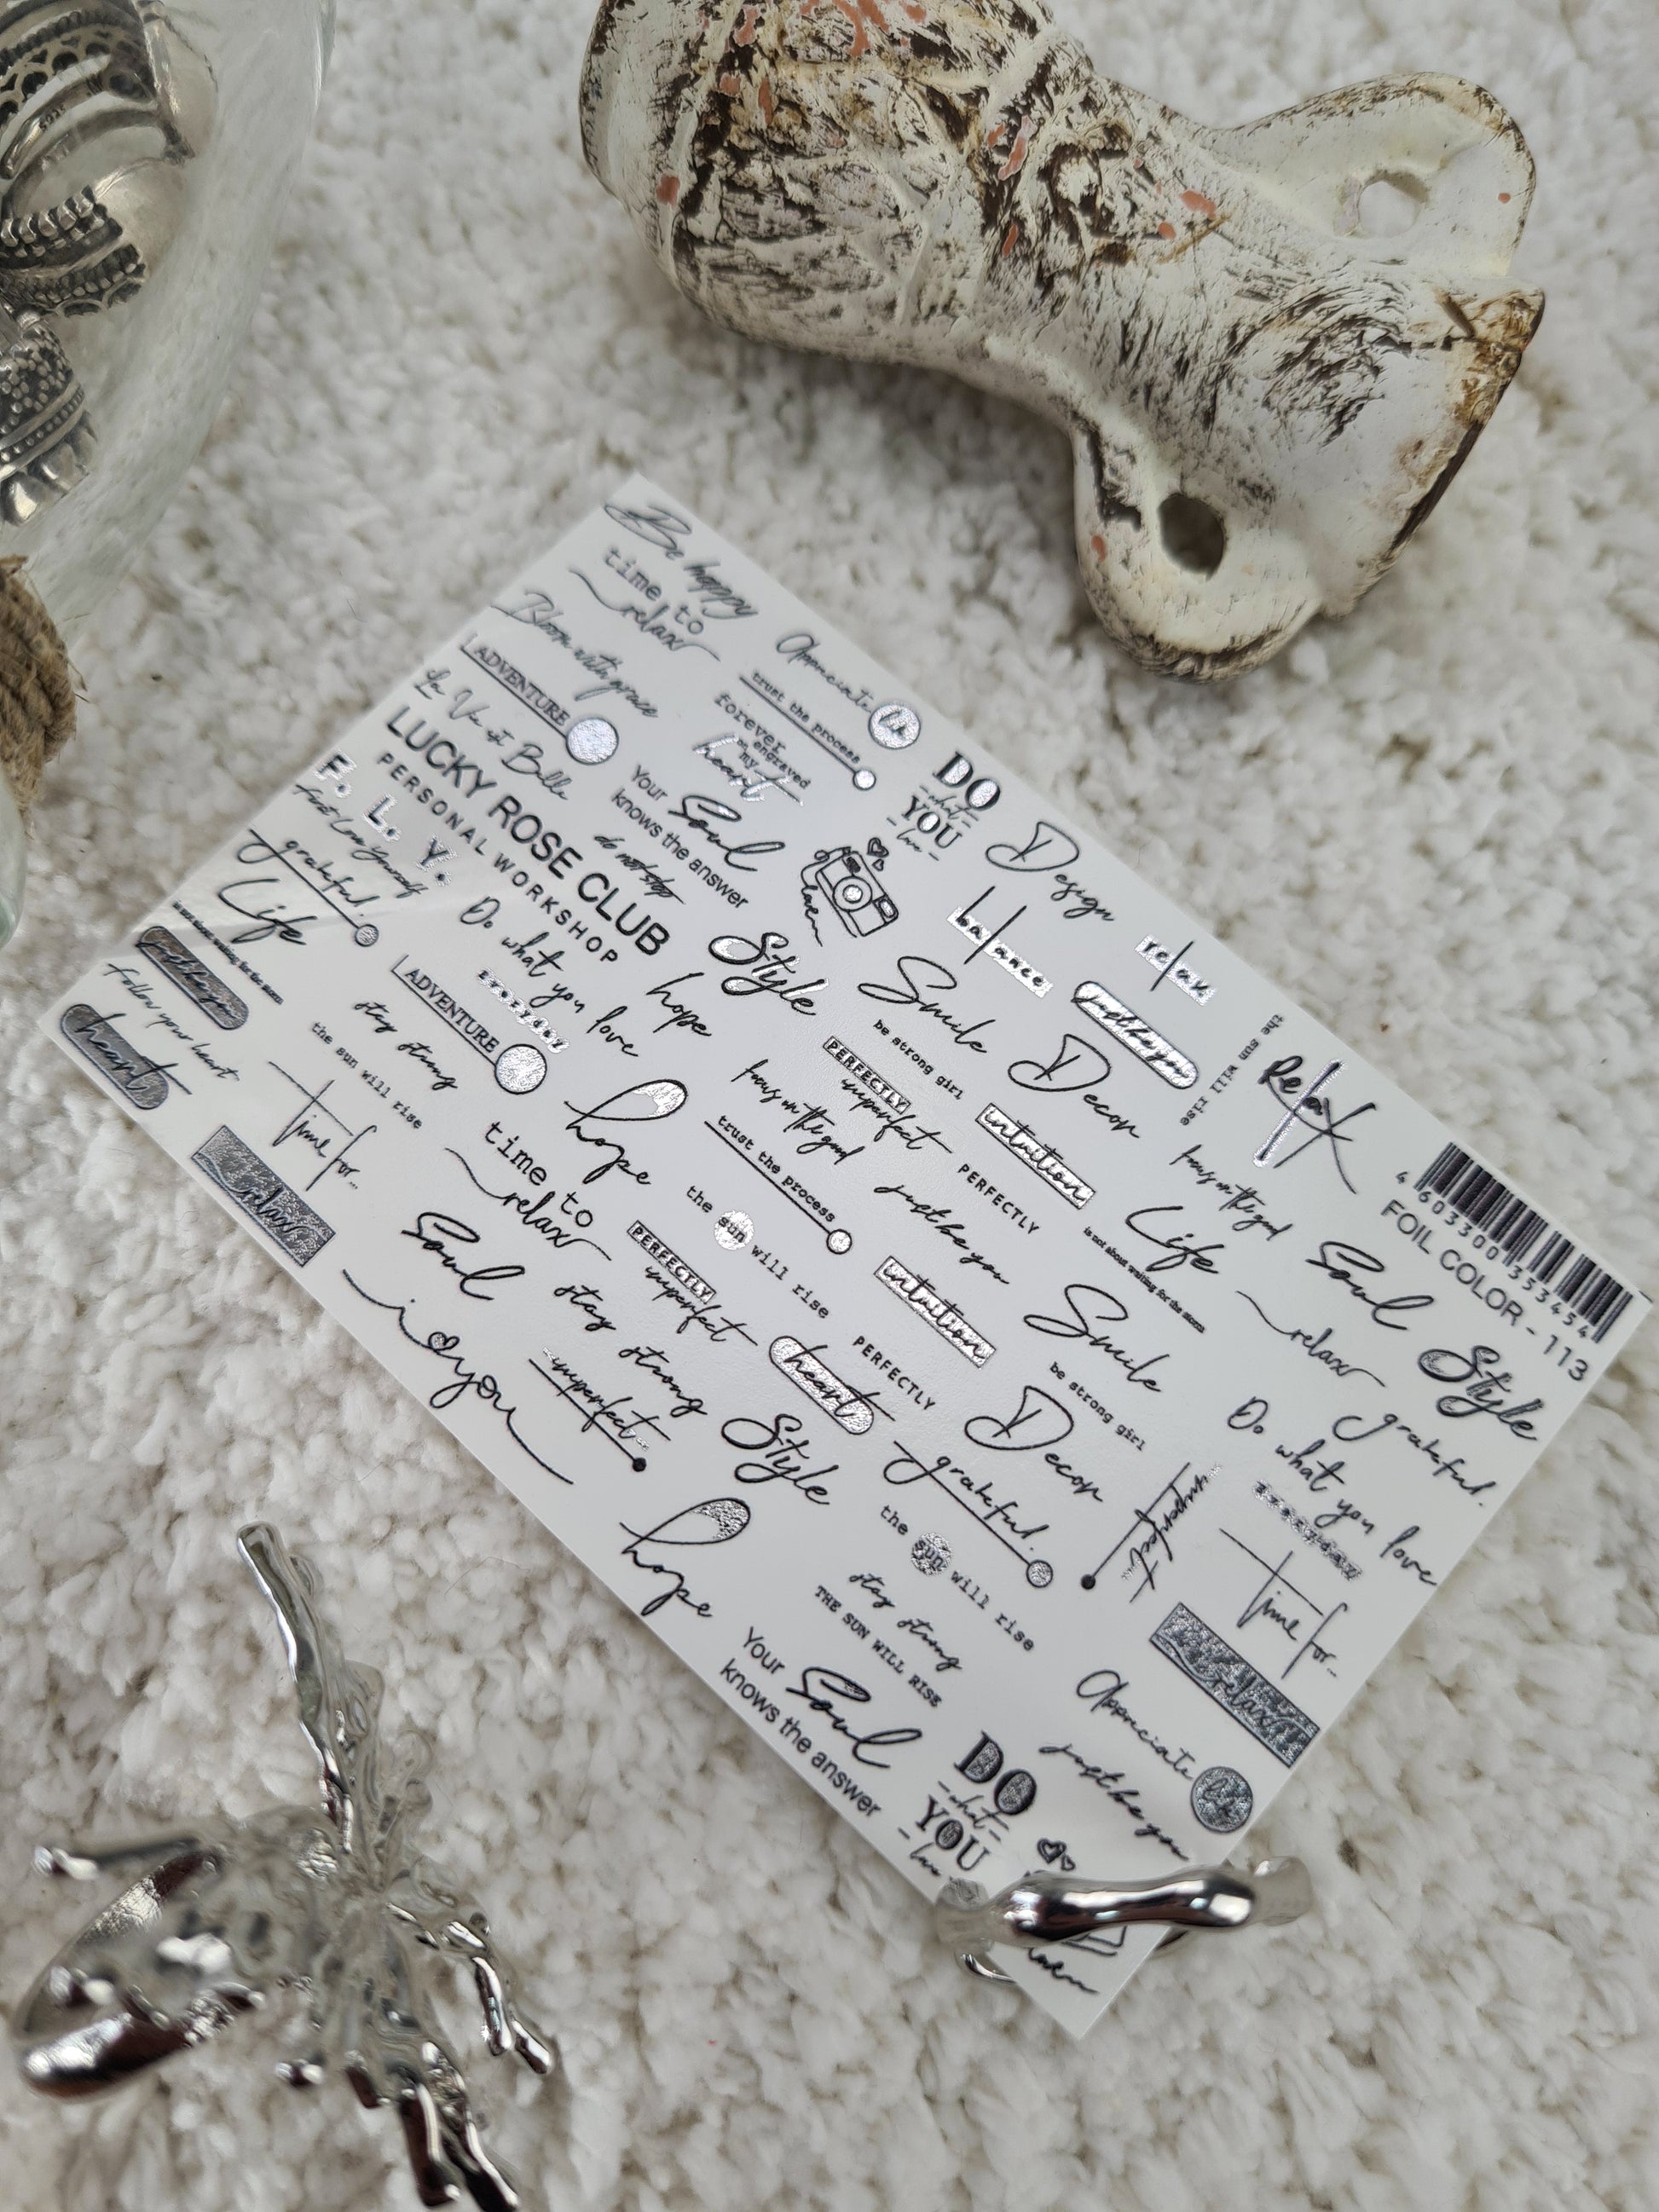 Be happy
time to
relax
Bloom with grace
ADVENTURE
La Vie est Belle
LUCKY ROSE CLUB
PERSONAL WORKSHOP
F. L. Y.
First Love Yourself
grateful.
Life
is not about waiting for the storm
just be you
Follow your heart
heart
Appreciate
life
trust the process
forever
engraved
in my
heart
Your
Soul
knows the answer
do not stop
Do what you love
everyday
ADVENTURE
stay strong
the sun will rise
Time for...
relax
DO
what
YOU
love
Design
balance
relax
Style
hope
Smile
be strong girl
just be you
Decor
the sun will rise
Relax
PERFECTLY
imperfect
focus on the good
intuition
trust the process
hope
time to
relax
Soul
i you
PERFECTLY
just be you
Life
is not about waiting for the storm
focus on the good
4 603300 353454
FOIL COLOR - 113
Soul
relax
Style
grateful.
the sun will rise
PERFECTLY
imperfect
stay strong
imperfect...
intuition
Smile
be strong girl
heart
PERFECTLY
Decor
Style
grateful.
hope
the sun will rise
stay strong
THE SUN WILL RISE
imperfect...
Do what you love
everyday
Time for...
relax
Your
Soul
knows the answer
Appreciate
life
just be you
DO
what
YOU
love